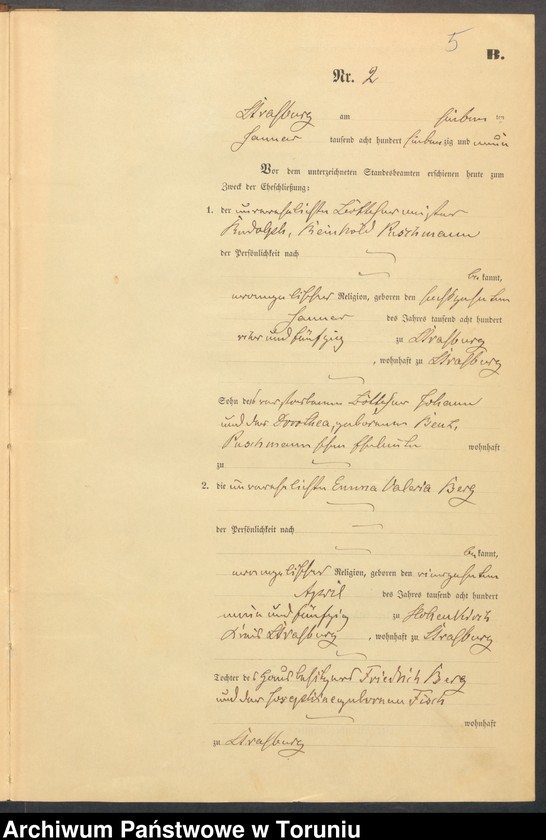 5
B.
Nr. 2
Strasburg am sieben ten
Januar tausend acht hundert siebenzig und neun
Vor dem unterzeichneten Standesbeamten erschienen heute zum
Zweck der Eheschließung:
1. der unverehelichte Böttchermeister
Rudolph, Reinhold Puschmann
der Persönlichkeit nach
be kannt,
evangelischer Religion, geboren den sechszehnten
Januar des Jahres tausend acht hundert
vier und fünfzig zu Strasburg
, wohnhaft zu Strasburg
Sohn des verstorbenen Böttcher Johann
und der Dorothea, geborenen
Puschmannschen Eheleute wohnhaft
zu
2. die unverehelichte Emma Valeria Berg
der Persönlichkeit nach
be kannt,
evangelischer Religion, geboren den vierzehnten
April des Jahres tausend acht hundert
neun und fünfzig zu Hohenkirch
Kreis Strasburg, wohnhaft zu Strasburg
Tochter des Hausbesitzers Friedrich Berg
und der Josephine geborenen Fisch
wohnhaft
zu Strasburg
Archiwum Państwowe w Toruniu